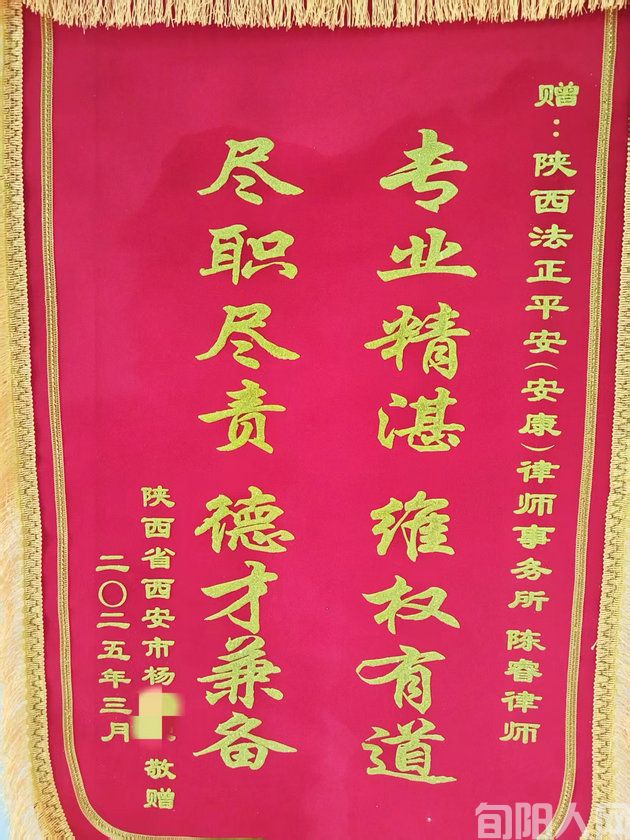 赠：陕西法正平安(安康)律师事务所 陈睿律师
专业精湛 维权有道
尽职尽责 德才兼备
陕西省西安市杨 敬赠
二〇二五年三月
旬阳人网